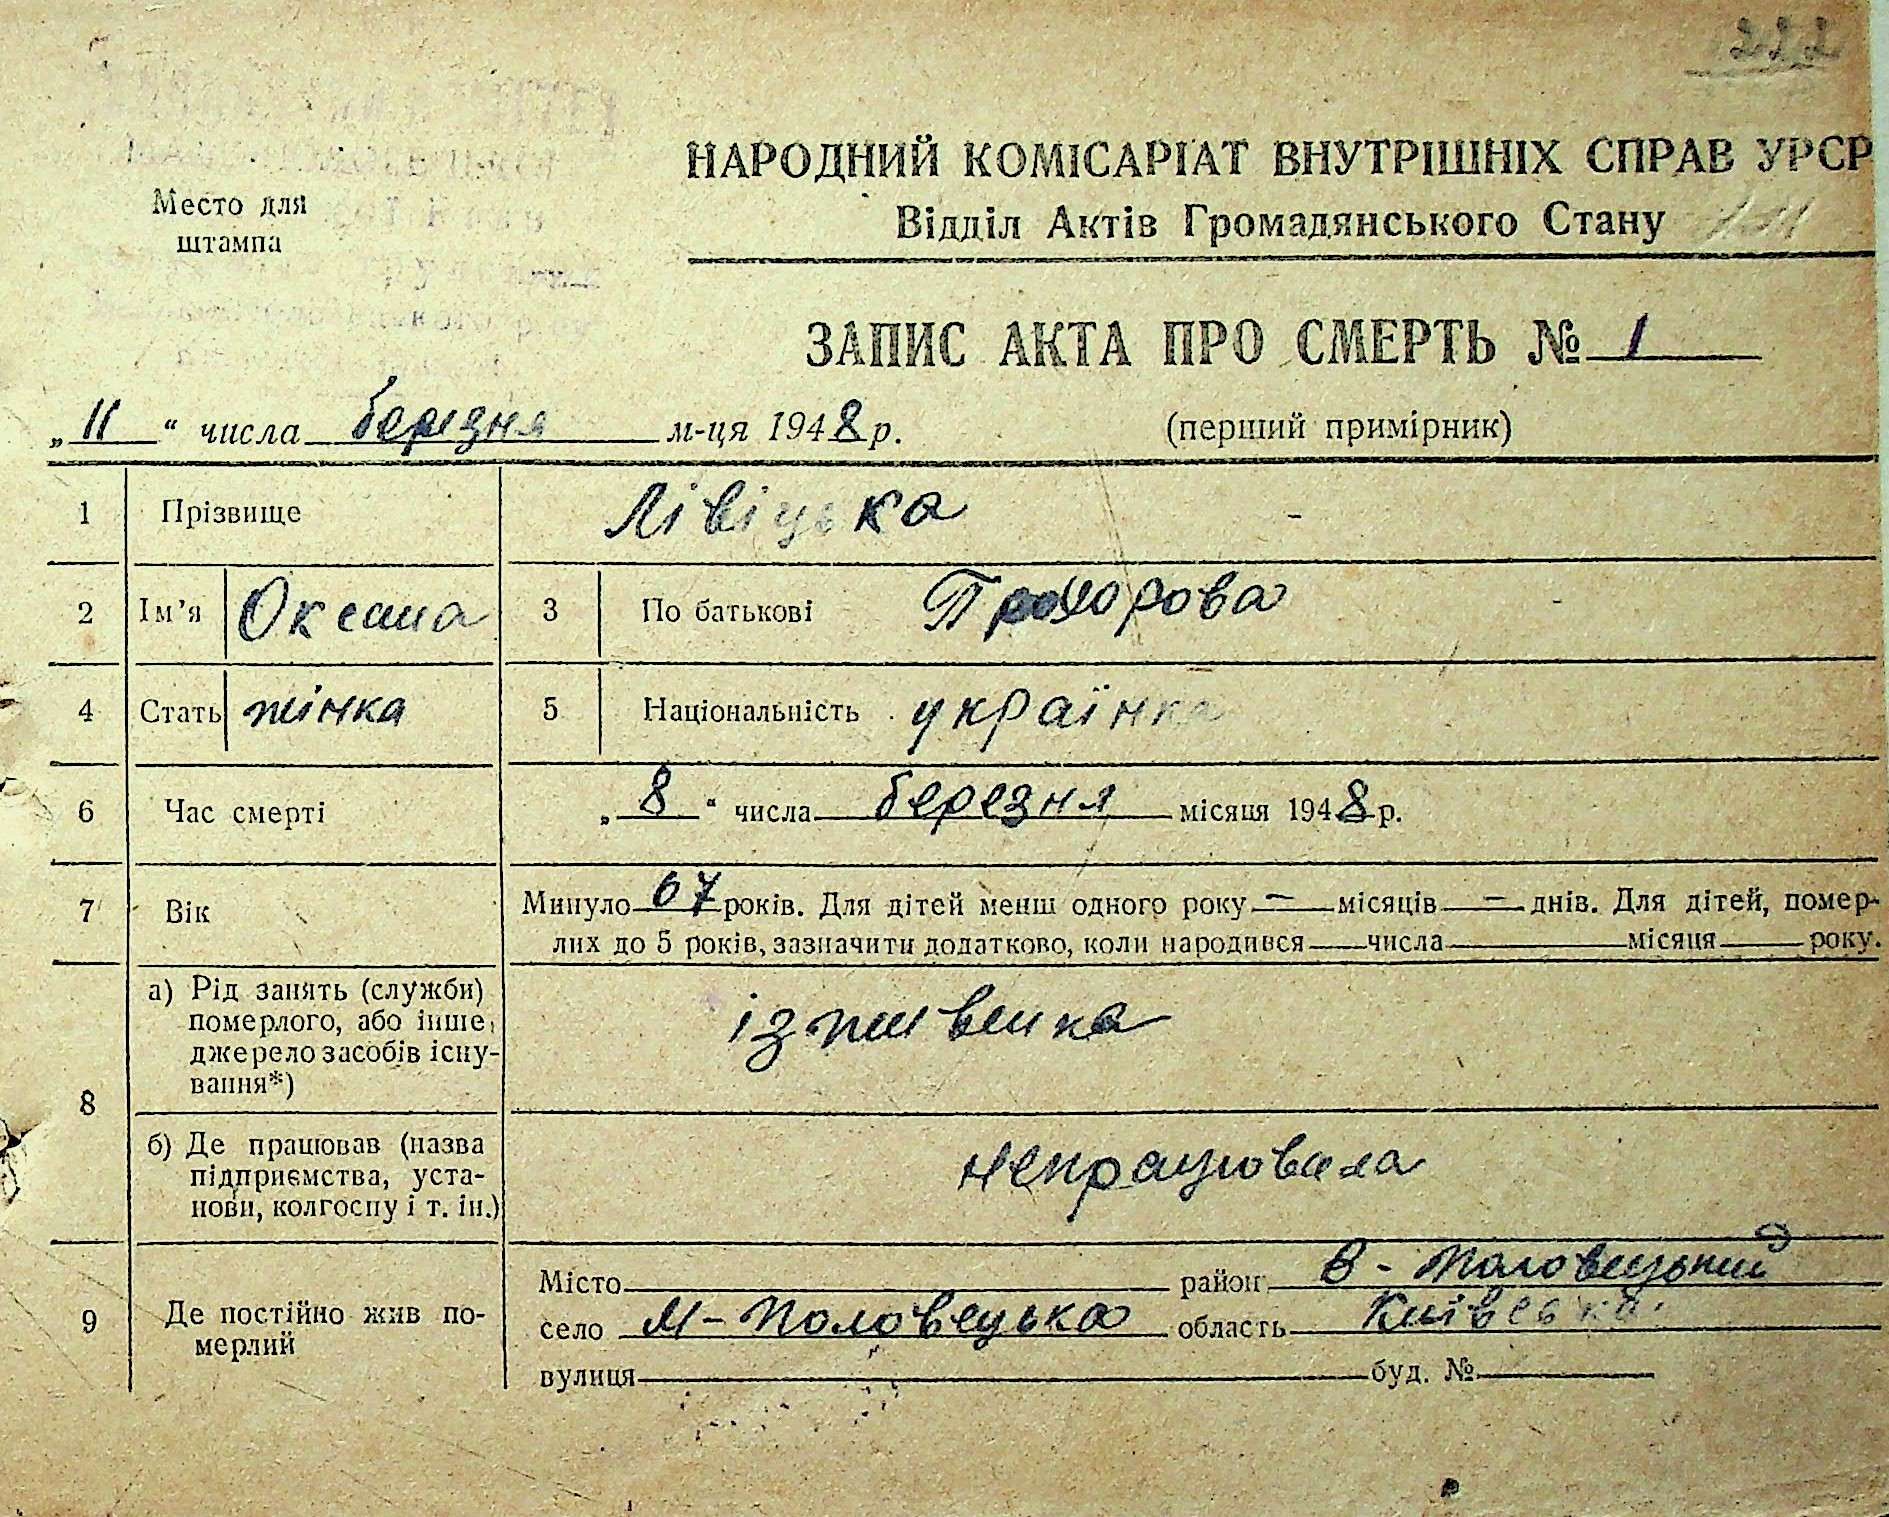 222
НАРОДНИЙ КОМІСАРІАТ ВНУТРІШНІХ СПРАВ УРСР
Место для
штампа
Відділ Актів Громадянського Стану
ЗАПИС АКТА ПРО СМЕРТЬ № 1
„11“ числа березня м-ця 1948 р.
(перший примірник)
1 Прізвище Лівіцька
2 Ім’я Оксана 3 По батькові Прохорова
4 Стать жінка 5 Національність українка
6 Час смерті „8“ числа березня місяця 1948 р.
7 Вік Минуло 67 років. Для дітей менш одного року — місяців — днів. Для дітей, помер-
лих до 5 років, зазначити додатково, коли народився числа місяця року.
8 а) Рід занять (служби)
померлого, або інше
джерело засобів існу-
вання*)
ізживенка
б) Де працював (назва
підприємства, уста-
нови, колгоспу і т. ін.)
непрацювала
9 Де постійно жив по-
мерлий
Місто район В-Половецький
село М-Половецька область Київська
вулиця буд. №